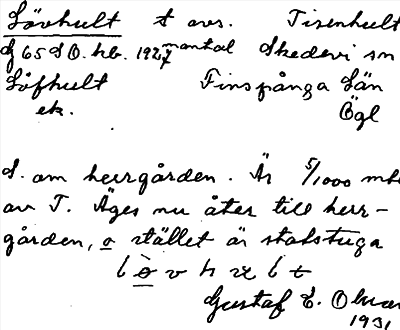 Lövhult t avs. Tisenhult
Gf 65 S O. hb. 1927 mantal Skedevi sn
Löfhult Finspånga Län
ek. Ögl
S. om herrgården. Är 5/1000 mtl
av T. Äges nu åter till herr-
gården, o stället är statstuga
Gustaf E.
1931